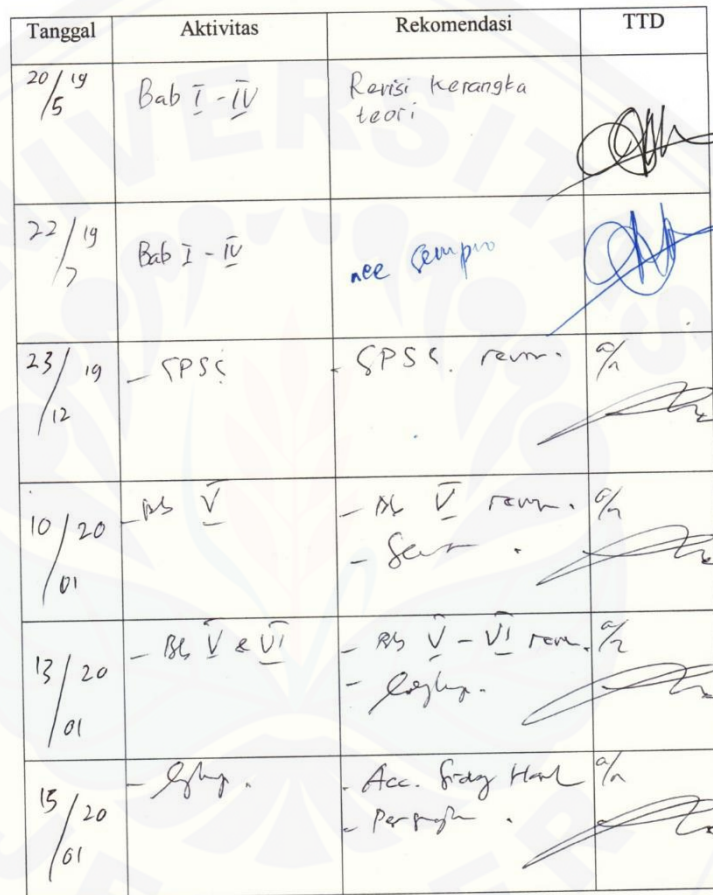 Tanggal Aktivitas Rekomendasi TTD
20/5 19 Bab I - IV Revisi kerangka
teori
22/7 19 Bab I - IV acc sempro
23/12 19 - SPSS - SPSS. revisi. a/n
10/01 20 - Bab V - Bab V revisi. a/n
13/01 20 - Bab V & VI - Bab V - VI revisi. a/n
- Lengkap.
15/01 20 - Lengkap. - Acc. Sidang Hasil a/n